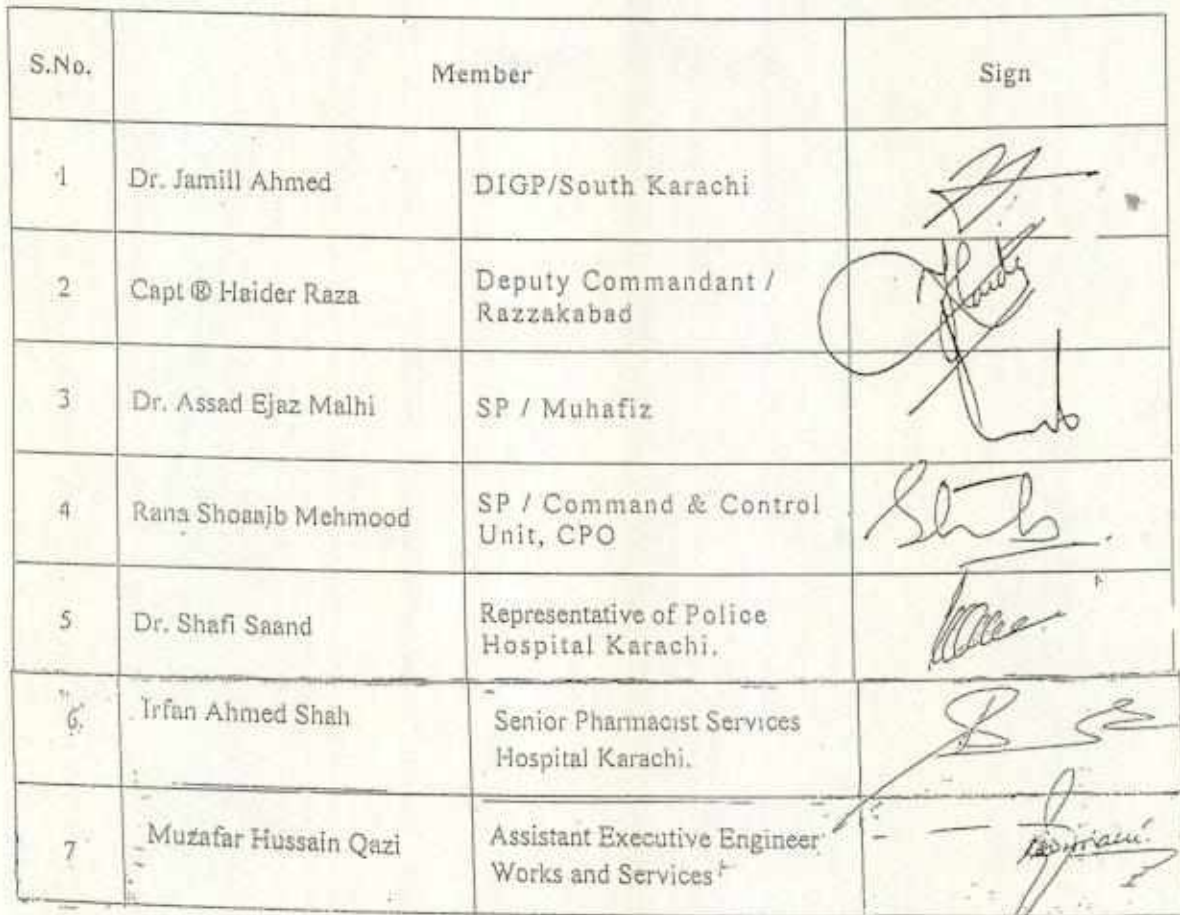 S.No. Member Sign
1 Dr. Jamill Ahmed DIGP/South Karachi
2 Capt ® Haider Raza Deputy Commandant /
Razzakabad
3 Dr. Assad Ejaz Malhi SP / Muhafiz
4 Rana Shoaaib Mehmood SP / Command & Control
Unit, CPO
5 Dr. Shafi Saand Representative of Police
Hospital Karachi.
6. Irfan Ahmed Shah Senior Pharmacist Services
Hospital Karachi.
7 Muzafar Hussain Qazi Assistant Executive Engineer
Works and Services